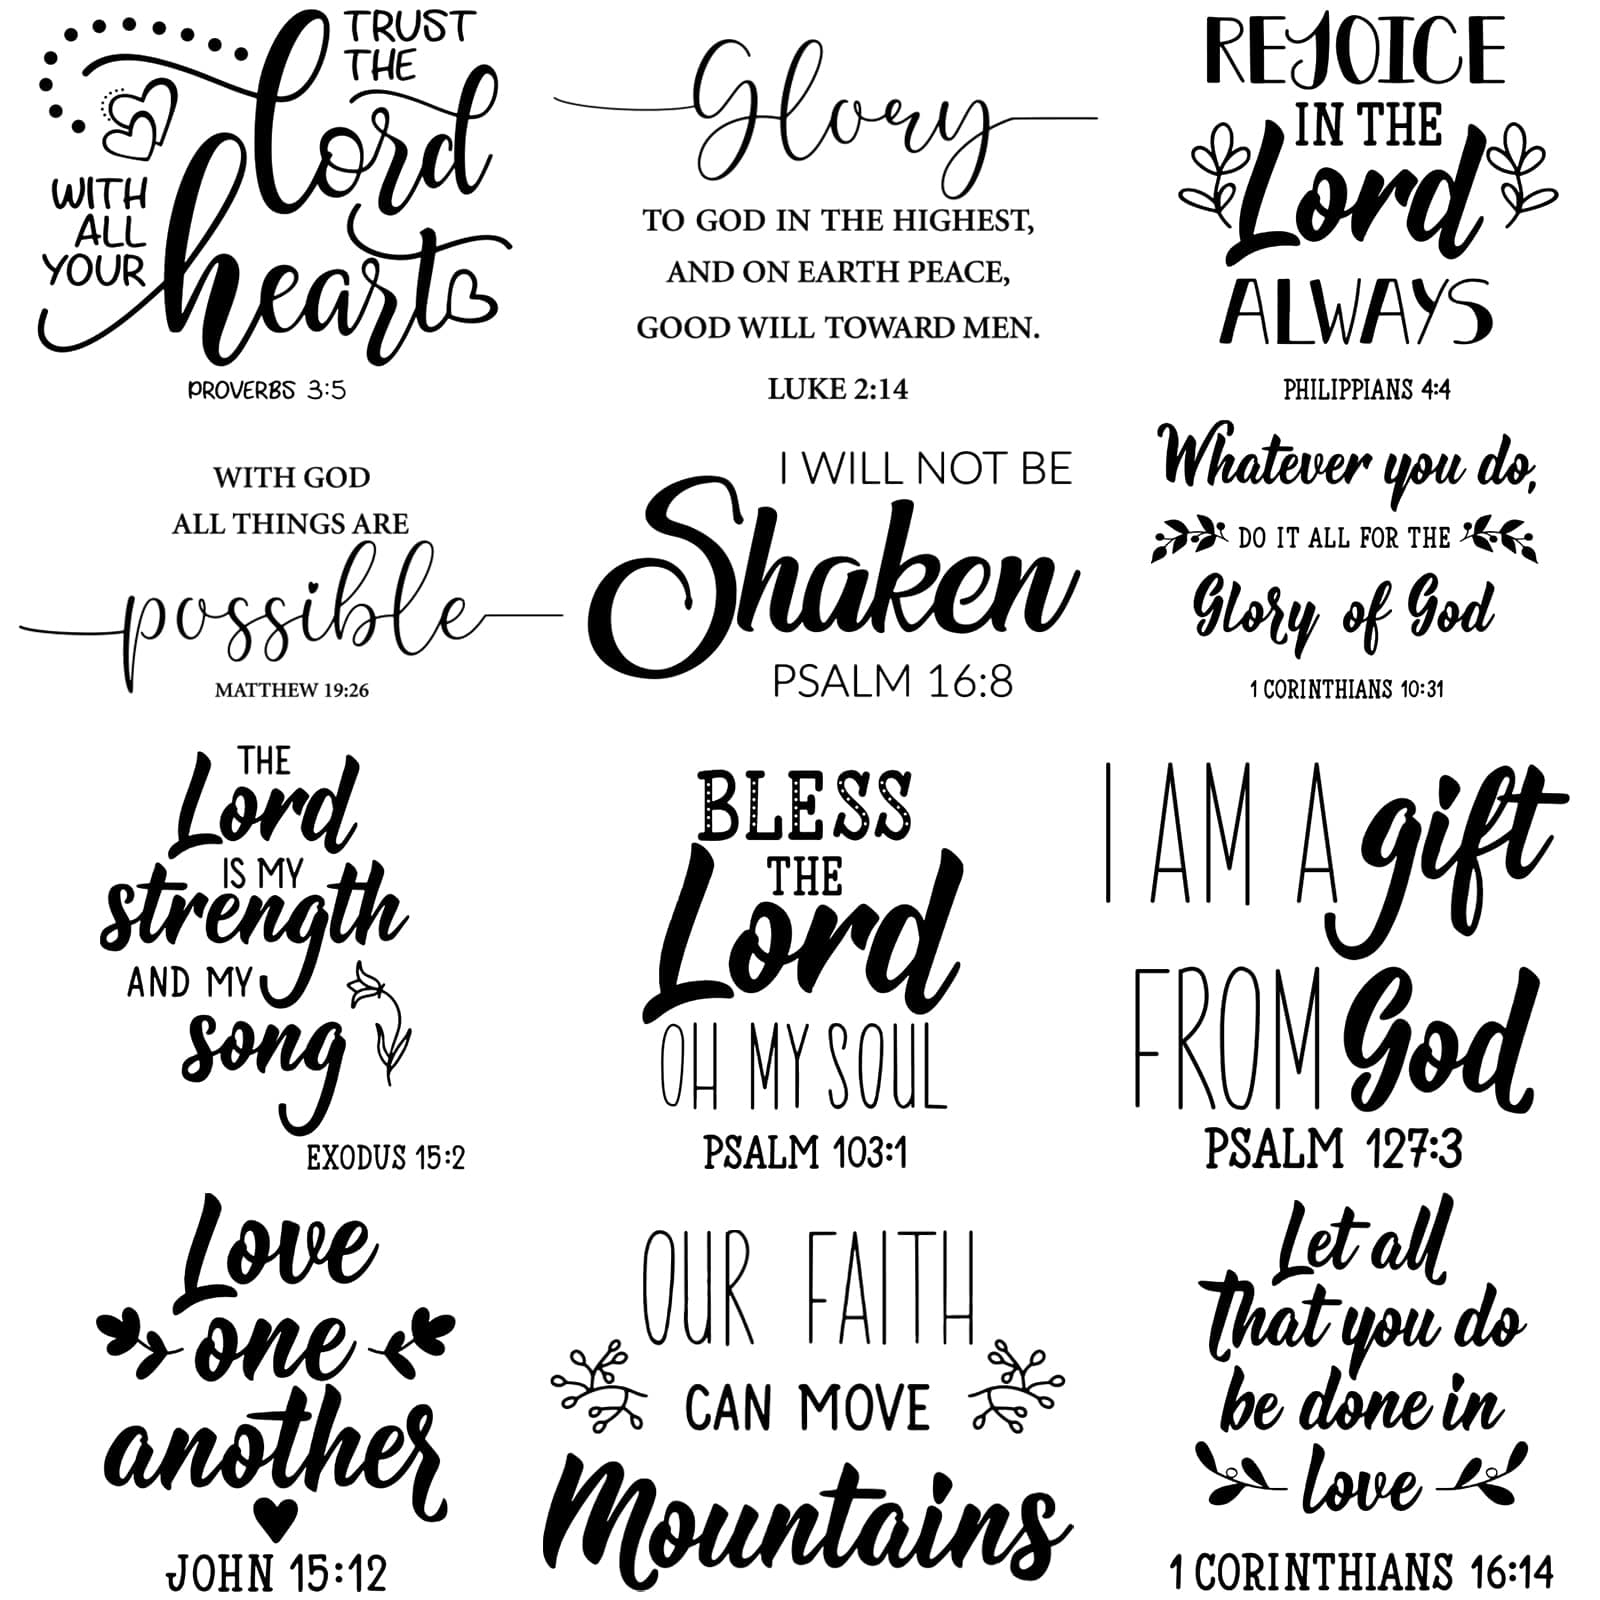 TRUST
THE
Lord
WITH
ALL
YOUR
heart
PROVERBS 3:5
Glory
TO GOD IN THE HIGHEST,
AND ON EARTH PEACE,
GOOD WILL TOWARD MEN.
LUKE 2:14
REJOICE
IN THE
Lord
ALWAYS
PHILIPPIANS 4:4
WITH GOD
ALL THINGS ARE
possible
MATTHEW 19:26
I WILL NOT BE
Shaken
PSALM 16:8
Whatever you do,
DO IT ALL FOR THE
Glory of God
1 CORINTHIANS 10:31
THE
Lord
IS MY
strength
AND MY
song
EXODUS 15:2
BLESS
THE
Lord
OH MY SOUL
PSALM 103:1
I AM A gift
FROM God
PSALM 127:3
Love
one
another
JOHN 15:12
OUR FAITH
CAN MOVE
Mountains
Let all
That you do
be done in
love
1 CORINTHIANS 16:14